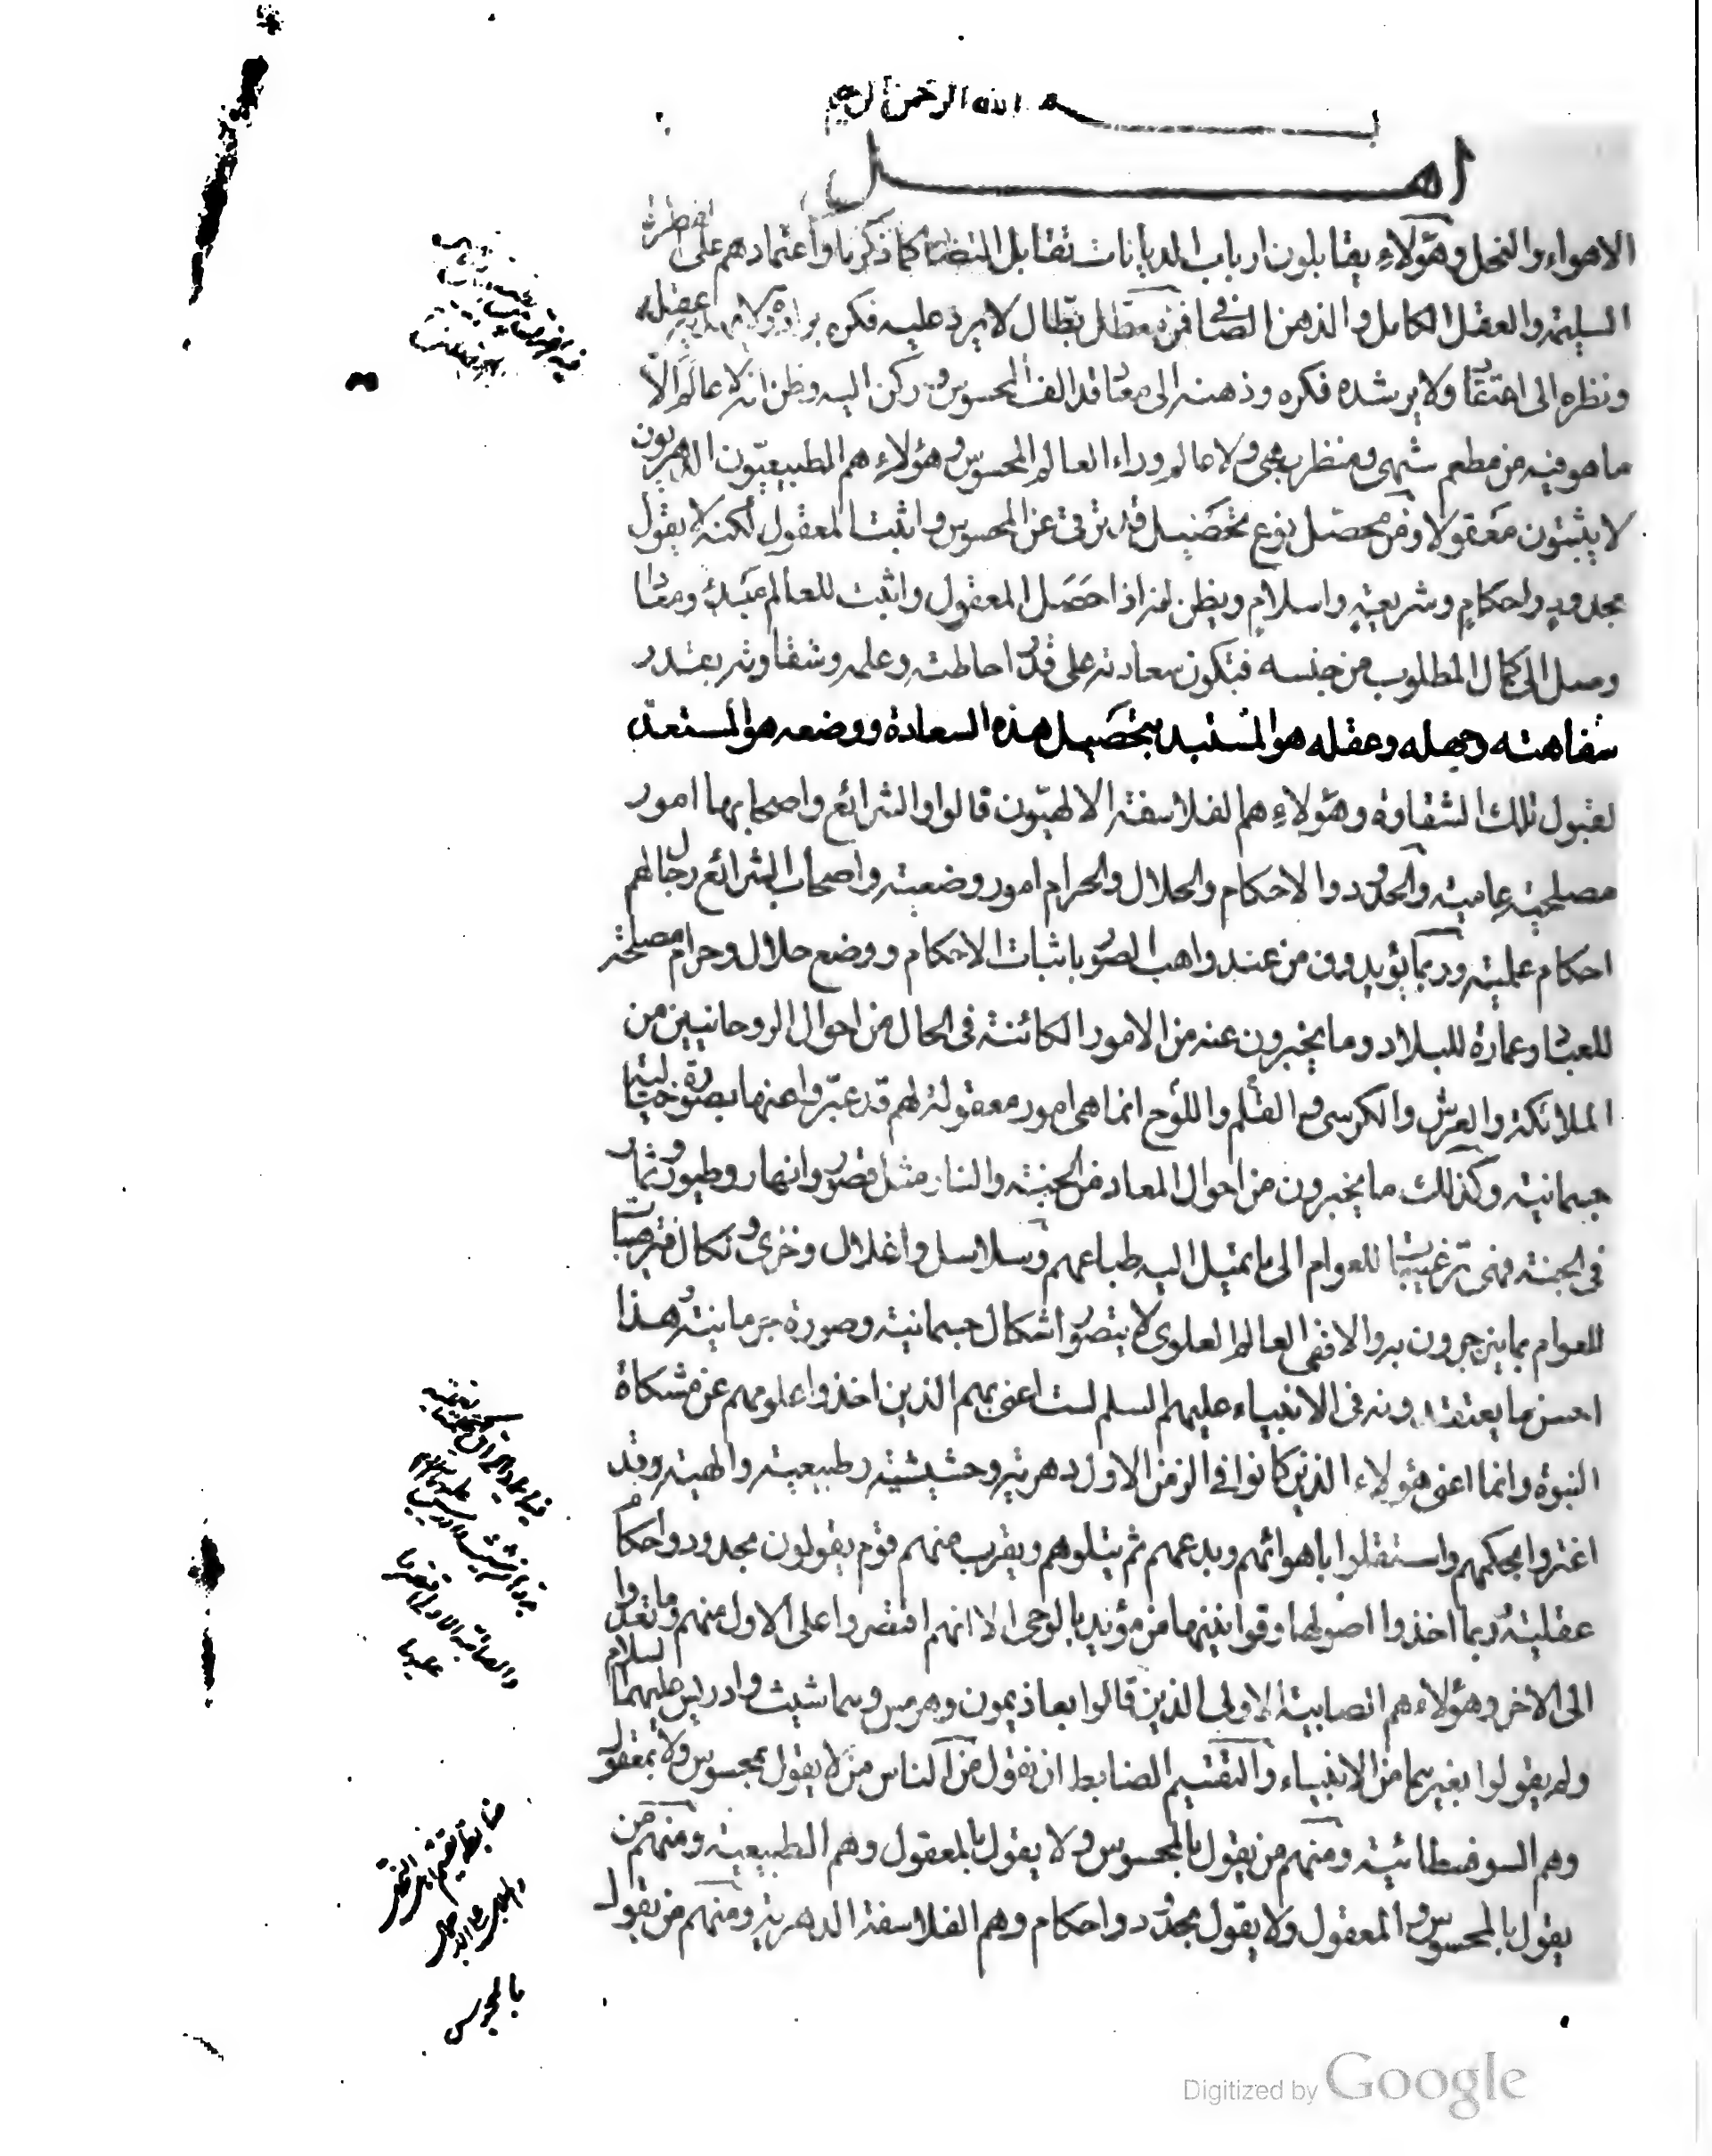 بسم الله الرحمن الرحيم
اهل
الاهواء والنحل وهؤلاء يقابلون ارباب الديانات تقابل التضاد كما ذكرنا واعتمادهم على الفطرة
السليمة والعقل الكامل والذهن الصافي فمن معطل بطال لا يرد عليه فكره براده ولا يهديه عقله
ونظره الى اعتقاد ولا يرشده فكره وذهنه الى معاد قد الف المحسوس وركن اليه وظن انه لا عالم الا
ما هو فيه من مطعم شهي ومنظر بهي ولا عالم وراء العالم المحسوس وهؤلاء هم الطبيعيون الدهريون
لا يثبتون معقولا ومن محصل نوع تحصيل قد ترقى عن المحسوس واثبت المعقول لكنه لا يقول
بحدود واحكام وشريعة واسلام ويظن انه اذا حصل المعقول واثبت للعالم مبدا ومعادا
وصل الى الكمال المطلوب من جنسه فتكون سعادته على قدر احاطته وعلمه وشقاوته بقدر
سفاهته وجهله وعقله هو المستبد بتحصيل هذه السعادة ووضعه هو المستعد
لقبول تلك الشقاوة وهؤلاء هم الفلاسفة الالهيون قالوا والشرائع واصحابها امور
مصلحية عامية والحدود والاحكام والحلال والحرام امور وضعية واصحاب الشرائع رجال لهم
احكام علمية وربما يؤيدون من عند واهب الصور باثبات الاحكام ووضع حلال وحرام مصلحة
للعباد وعمارة للبلاد وما يخبرون عنه من الامور الكائنة في الحال من احوال الروحانيين من
الملائكة والعرش والكرسي والقلم واللوح انما هي امور معقولة لهم قد عبروا عنها بصورة خيالية
جسمانية وكذلك ما يخبرون من احوال المعاد من الجنة والنار مثل قصور وانهار وطيور وثمار
في الجنة فهي ترغيبات للعوام الى ما تميل اليه طباعهم وسلاسل واغلال وخزي ونكال فترهيبات
للعوام بما ينزجرون به والا ففي العالم العلوي لا يتصور اشكال جسمانية وصورة جرمانية وهذا
احسن ما يعتقدونه في الانبياء عليهم السلم لست اعني بهم الذين اخذوا علومهم عن مشكاة
النبوة وانما اعني هؤلاء الذين كانوا في الزمن الاول دهرية وحشيشية وطبيعية والهية وقد
اغتروا بحكمهم واستقلوا باهوائهم وبدعهم ثم يتلوهم ويقرب منهم قوم يقولون بحدود واحكام
عقلية وربما اخذوا اصولها وقوانينها من مؤيد بالوحي الا انهم اقتصروا على الاول منهم وما تعدوا
الى الاخر وهؤلاء هم الصابية الاولى الذين قالوا بعاذيمون وهرمس وهما شيث وادريس عليهما السلام
ولم يقولوا بغيرهما من الانبياء والتقسيم الضابط ان نقول من الناس من لا يقول بمحسوس ولا بمعقول
وهم السوفسطائية ومنهم من يقول بالمحسوس ولا يقول بالمعقول وهم الطبيعية ومنهم من
يقول بالمحسوس والمعقول ولا يقول بحدود واحكام وهم الفلاسفة الدهرية ومنهم من يقول
بالمحسوس
Digitized by Google